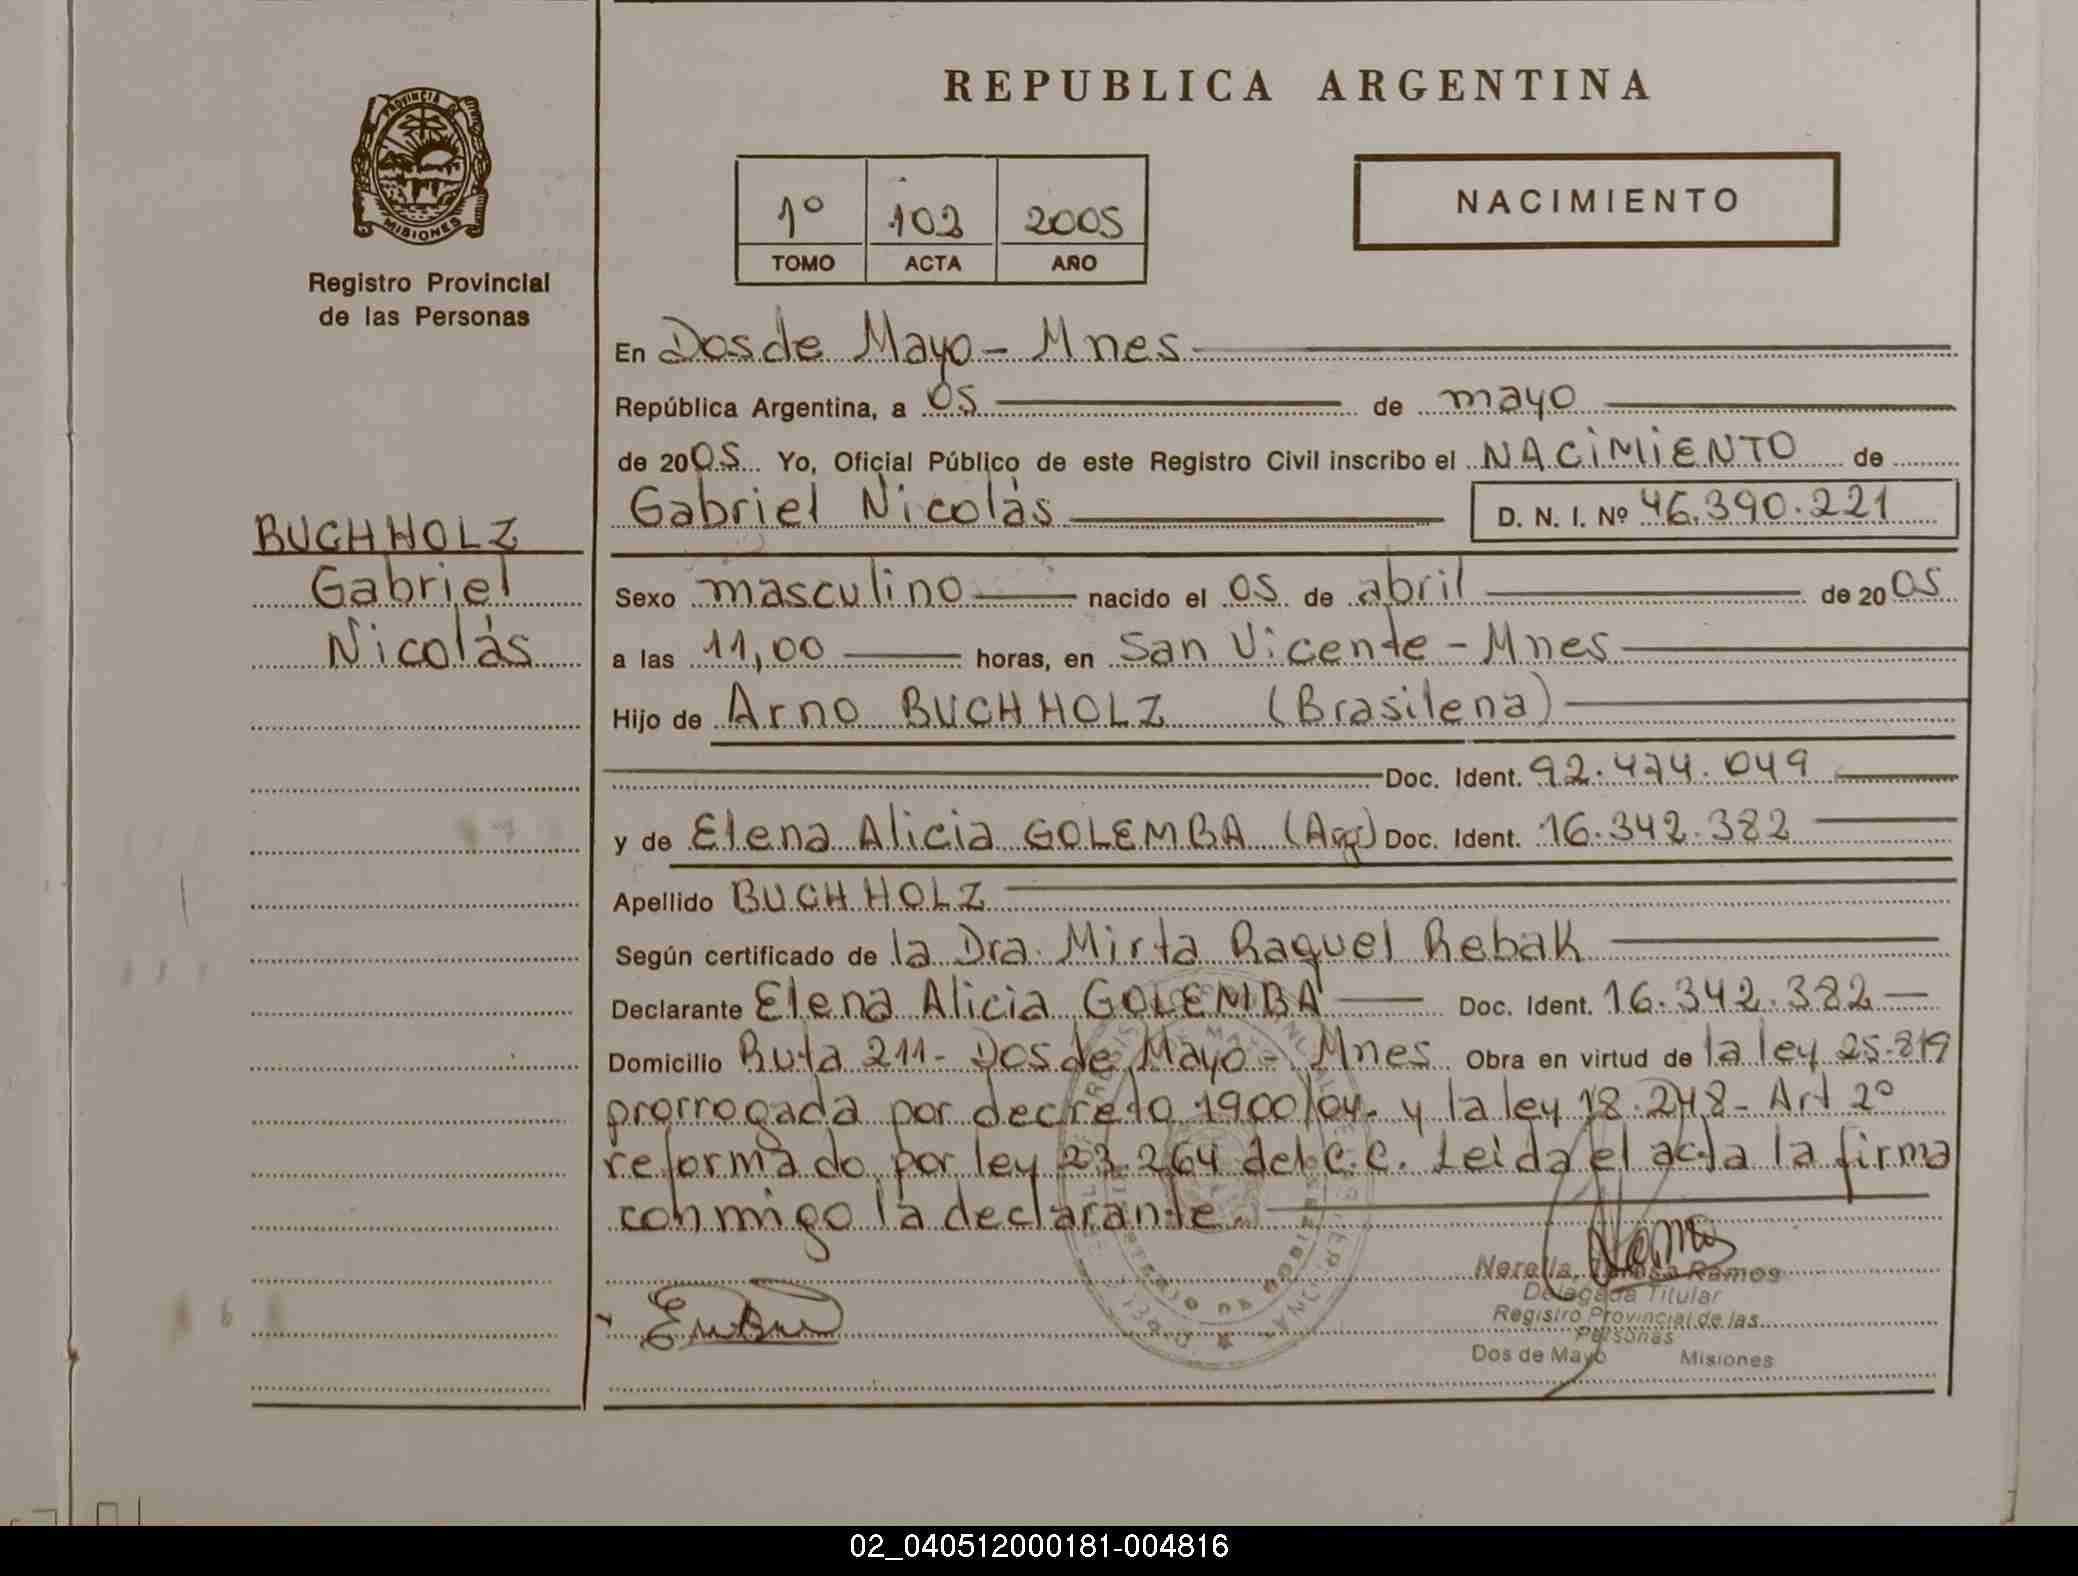 PROVINCIA DE
MISIONES
Registro Provincial
de las Personas
BUCHHOLZ
Gabriel
Nicolás
REPUBLICA ARGENTINA
1º 102 2005
TOMO ACTA AÑO
NACIMIENTO
En Dos de Mayo - Mnes
República Argentina, a 05 de mayo
de 2005 Yo, Oficial Público de este Registro Civil inscribo el NACIMIENTO de
Gabriel Nicolás D. N. I. Nº 46.390.221
Sexo masculino nacido el 05 de abril de 2005
a las 11,00 horas, en San Vicente - Mnes
Hijo de Arno BUCHHOLZ (Brasilena)
Doc. Ident. 92.474.049
y de Elena Alicia GOLEMBA (Arg) Doc. Ident. 16.342.382
Apellido BUCHHOLZ
Según certificado de la Dra. Mirta Raquel Rebak
Declarante Elena Alicia GOLEMBA Doc. Ident. 16.342.382
Domicilio Ruta 211 - Dos de Mayo - Mnes Obra en virtud de la ley 25.819
prorrogada por decreto 1900/04. y la ley 18.248 - Art 2º
reformado por ley 23.264 del C.C. Leida el acta la firma
conmigo la declarante.
Ramos
Delegada Titular
Registro Provincial de las
Personas
Dos de Mayo Misiones
02_040512000181-004816